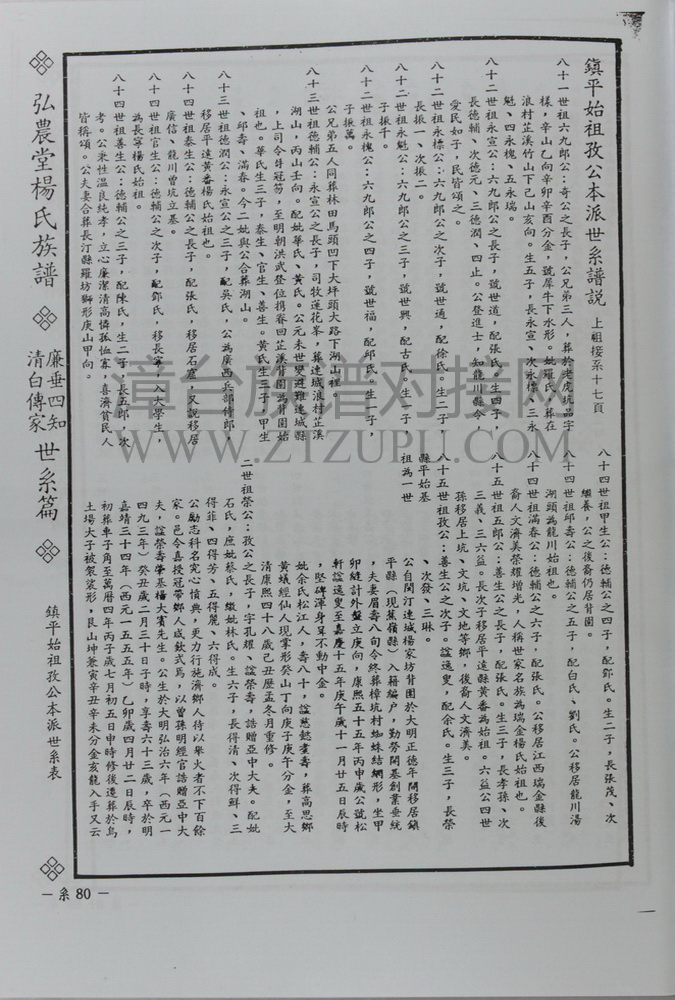 鎮平始祖孜公本派世系譜説 上組接系十七頁
八十一世祖六九郎公：奇公之長子，公兄弟三人，葬於老虎坑品字
樣，辛山乙向辛卯辛酉分金，號犀牛下水形。妣羅氏，葬在
浪村芷溪竹山下己山亥向。生五子，長永宣、次永標、三永
魁、四永槐、五永瑞。
八十二世祖永宣公：六九郎公之長子，號世道，配張氏。生四子，
長德輔、次德元、三德潤、四止。公登進士，知龍川縣令，
愛民如子，民皆頌之。
八十二世祖永標公：六九郎公之次子，號世通，配徐氏。生二子，
長振一、次振二。
八十二世祖永魁公：六九郎公之三子，號世興，配古氏。生一子，
子振千。
八十二世祖永槐公：六九郎公之四子，號世福，配邱氏。生一子，
子振萬。
公兄弟五人同葬林田馬頭凹下大坪頭大路下湖山裡。
八十三世祖德輔公：永宣公之長子，司牧蓮花峯，葬連城浪村芷溪
湖山，丙山壬向。配妣華氏、黄氏。公元末世變避難連城縣
，上司令弁冠笏，至明朝洪武登位携眷回芷溪背園為背園始
祖也。華氏生三子，泰生、官生、善生。黄氏生三子，甲生
、邱壽、滿春。今二妣與公合葬湖山。
八十三世祖德潤公：永宣公之三子，配吳氏，公為廣西兵部侍郎，
移居平遠黄畨楊氏始祖也。
八十四世祖泰生公：德輔公之長子，配張氏，移居石窟，又說移居
廣信、龍川曾坑立基。
八十四世祖官生公：德輔公之次子，配鄧氏，移長寧，入大學生，
為長寧楊氏始祖。
八十四世祖善生公：德輔公之三子，配陳氏，生二子，長五郎、次
考。公秉性溫良純孝，立心廉潔清高憐孤恤寡，喜濟貧民人
皆稱頌。公夫妻合葬長汀縣羅坊獅形庚山甲向。
八十四世祖甲生公：德輔公之四子，配鄧氏。生二子，長張茂、次
繼養，公之後裔仍居背園。
八十四世祖邱壽公：德輔公之五子，配白氏、劉氏。公移居龍川湯
湖頭為龍川始祖也。
八十四世祖滿春公：德輔公之六子，配張氏。公移居江西瑞金縣後
裔人文濟美榮耀增光，人稱世家名族為瑞金楊氏始祖也。
八十五世祖五郎公：善生公之長子，配張氏。生三子，長孝孫、次
三義、三六益。長次子移居平遠縣黄畨為始祖。六益公四世
孫移居上坑、文坑、文地等鄉，後裔人文濟美。
八十五世祖孜公：善生公之次子。諡逸叟，配余氏。生三子，長榮
、次發、三琳。
縣平始基
祖為一世
公自閩汀連城楊家坊背園於大明正德年間移居鎮
平縣（現蕉嶺縣）入籍编户，勤勞開基創業垂統
，夫妻眉壽八旬令終葬樟坑村蜘蛛結網形，坐甲
卯縫計外盤立庚向，康熙五十五年丙申歲公號松
軒諡逸叟至嘉慶十五年庚午歲十一月廿五日辰時
，堅碑渾身昇不動中金。
妣余氏松江人，壽八十，諡慈懿耋壽，葬高思鄉
黄蟻經仙人現掌形癸山丁向庚子庚午分金，至大
清康熙四十八歲己丑歷孟冬月重修。
二世祖榮公：孜公之長子，字孔耀、諡榮壽，誥贈亞中大夫。配妣
石氏，庶妣蔡氏，繼妣林氏。生六子，長得清、次得鲜、三
得菲、四得芳、五得麗、六得成。
公勵志科名究心憤典，更力行施濟鄉人待以舉火者不下百餘
家。邑令喜授冠帶鄉人咸欽式焉，以曾孫明經官誥贈亞中大
夫，諡榮壽肇基楊大賓先生。公生於大明弘治六年（西元一
四九三年）癸丑歲二月三十日子時，享壽六十三歲，卒於明
嘉靖三十四年（西元一五五五年）乙卯歲四月廿二日辰時，
初葬車子角至萬曆四年丙子歲七月初五日申時修後遷葬於烏
土場大子被袈裟形，艮山坤兼寅辛丑辛未分金亥龍入手又云
弘農堂楊氏族譜
廉垂四知
清白傳家
世系篇
鎮平始祖孜公本派世系表
－系 80－
漳台族谱对接网
WWW.ZTZUPU.COM